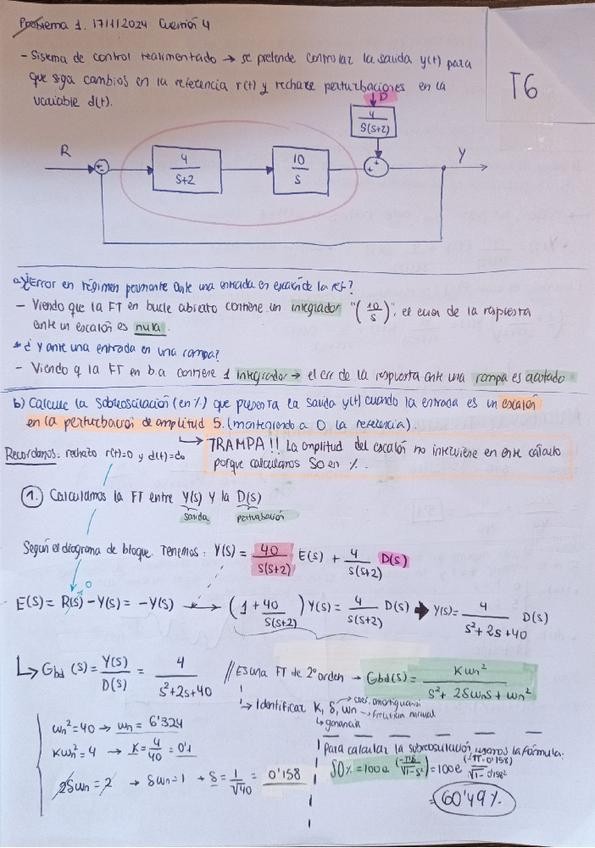 Problema 1. 17/1/2024 Cuestión 4
T6
- Sistema de control realimentado → se pretende controlar la salida y(t) para
que siga cambios en la referencia r(t) y rechace perturbaciones en la
variable d(t).
D
4/(s(s+2))
R
4/(s+2)
10/s
Y
a) ¿Error en régimen permanente ante una entrada en escalón de la ref?
- Viendo que la FT en bucle abierto contiene un integrador "(10/s)", el error de la respuesta
ante un escalón es nula.
* ¿Y ante una entrada en una rampa?
- Viendo q la FT en b.a contiene 1 integrador → el err de la respuesta ante una rampa es acotado
b) Calcule la sobreoscilación (en %) que presenta la salida y(t) cuando la entrada es un escalón
en la perturbación de amplitud 5. (manteniendo a 0 la referencia).
↳ TRAMPA!! La amplitud del escalón no interviene en este cálculo
porque calculamos SO en %.
Recordamos: rechazo r(t)=0 y d(t)=do
1. Calculamos la FT entre Y(s) y la D(s)
salida perturbación
Según el diagrama de bloque tenemos: Y(s) = 40/(s(s+2)) E(s) + 4/(s(s+2)) D(s)
0
E(s) = R(s) - Y(s) = -Y(s) → (1 + 40/(s(s+2))) Y(s) = 4/(s(s+2)) D(s) → Y(s) = 4/(s²+2s+40) D(s)
↳ Gbd(s) = Y(s)/D(s) = 4/(s²+2s+40) // Es una FT de 2º orden → Gbd(s) = Kwn²/(s²+2δwns+wn²)
↳ Identificar K, δ, wn → coef. amortiguación
→ frecuencia natural
↳ ganancia
wn² = 40 → wn = 6'324
Kwn² = 4 → K = 4/40 = 0'1
2δwn = 2 → δwn = 1 → δ = 1/√40 = 0'158
Para calcular la sobreoscilación, usamos la fórmula:
SO% = 100e^(-πδ/√1-δ²) = 100e^(-π·0'158/√1-0'158²)
= 60'49%